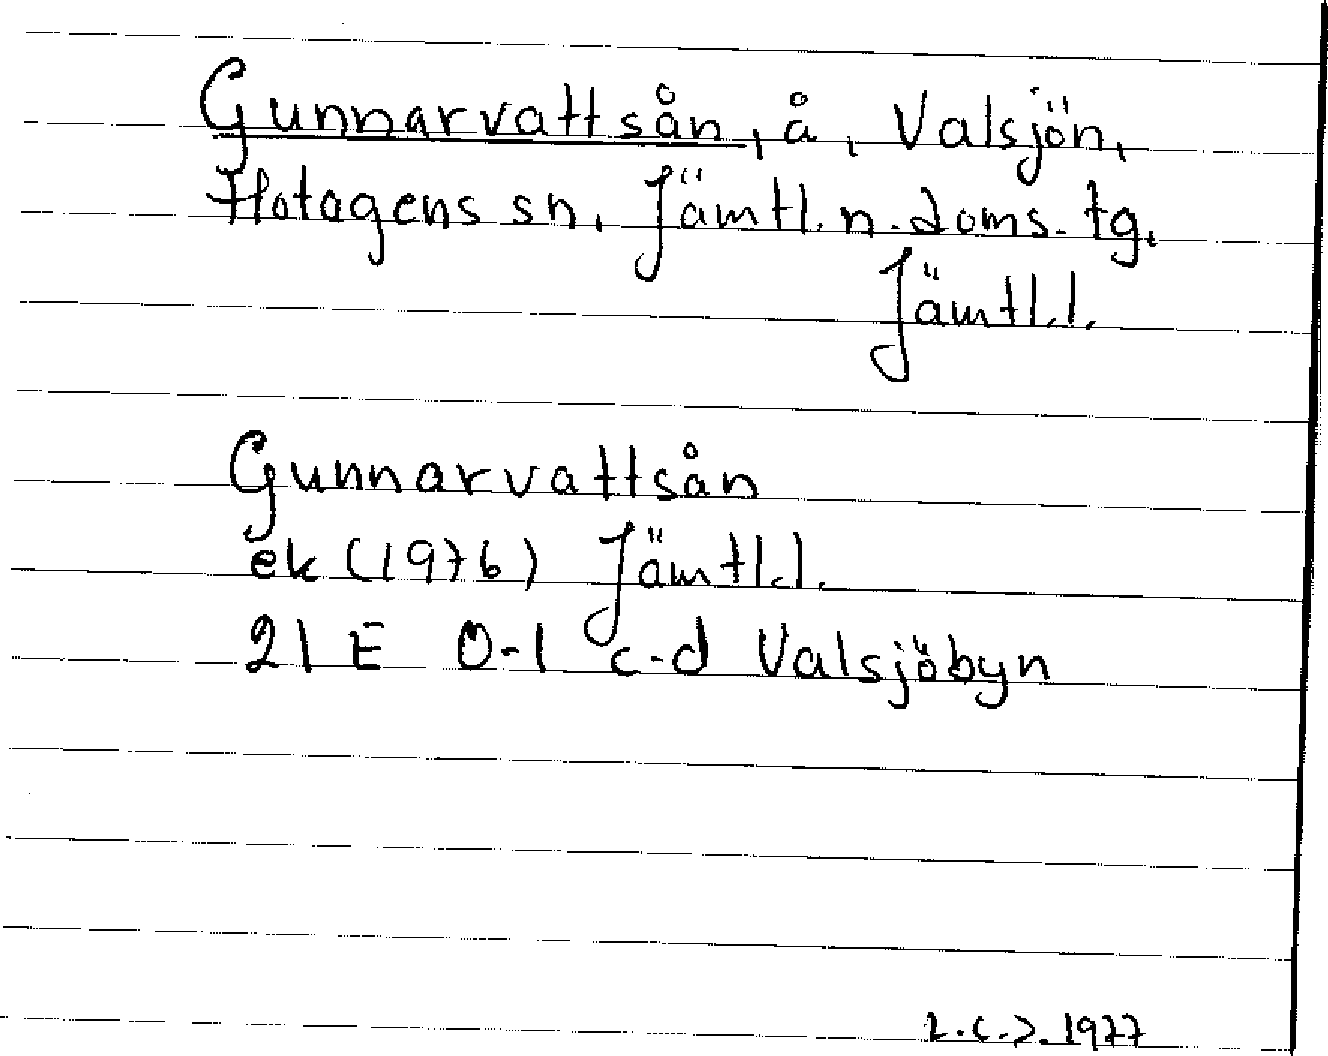 Gunnarvattsån, å, Valsjön,
Hotagens sn, Jämtl. n. doms. tg,
Jämtl.l.
Gunnarvattsån
ek (1976) Jämtl.l.
21 E 0-1 c-d Valsjöbyn
1977